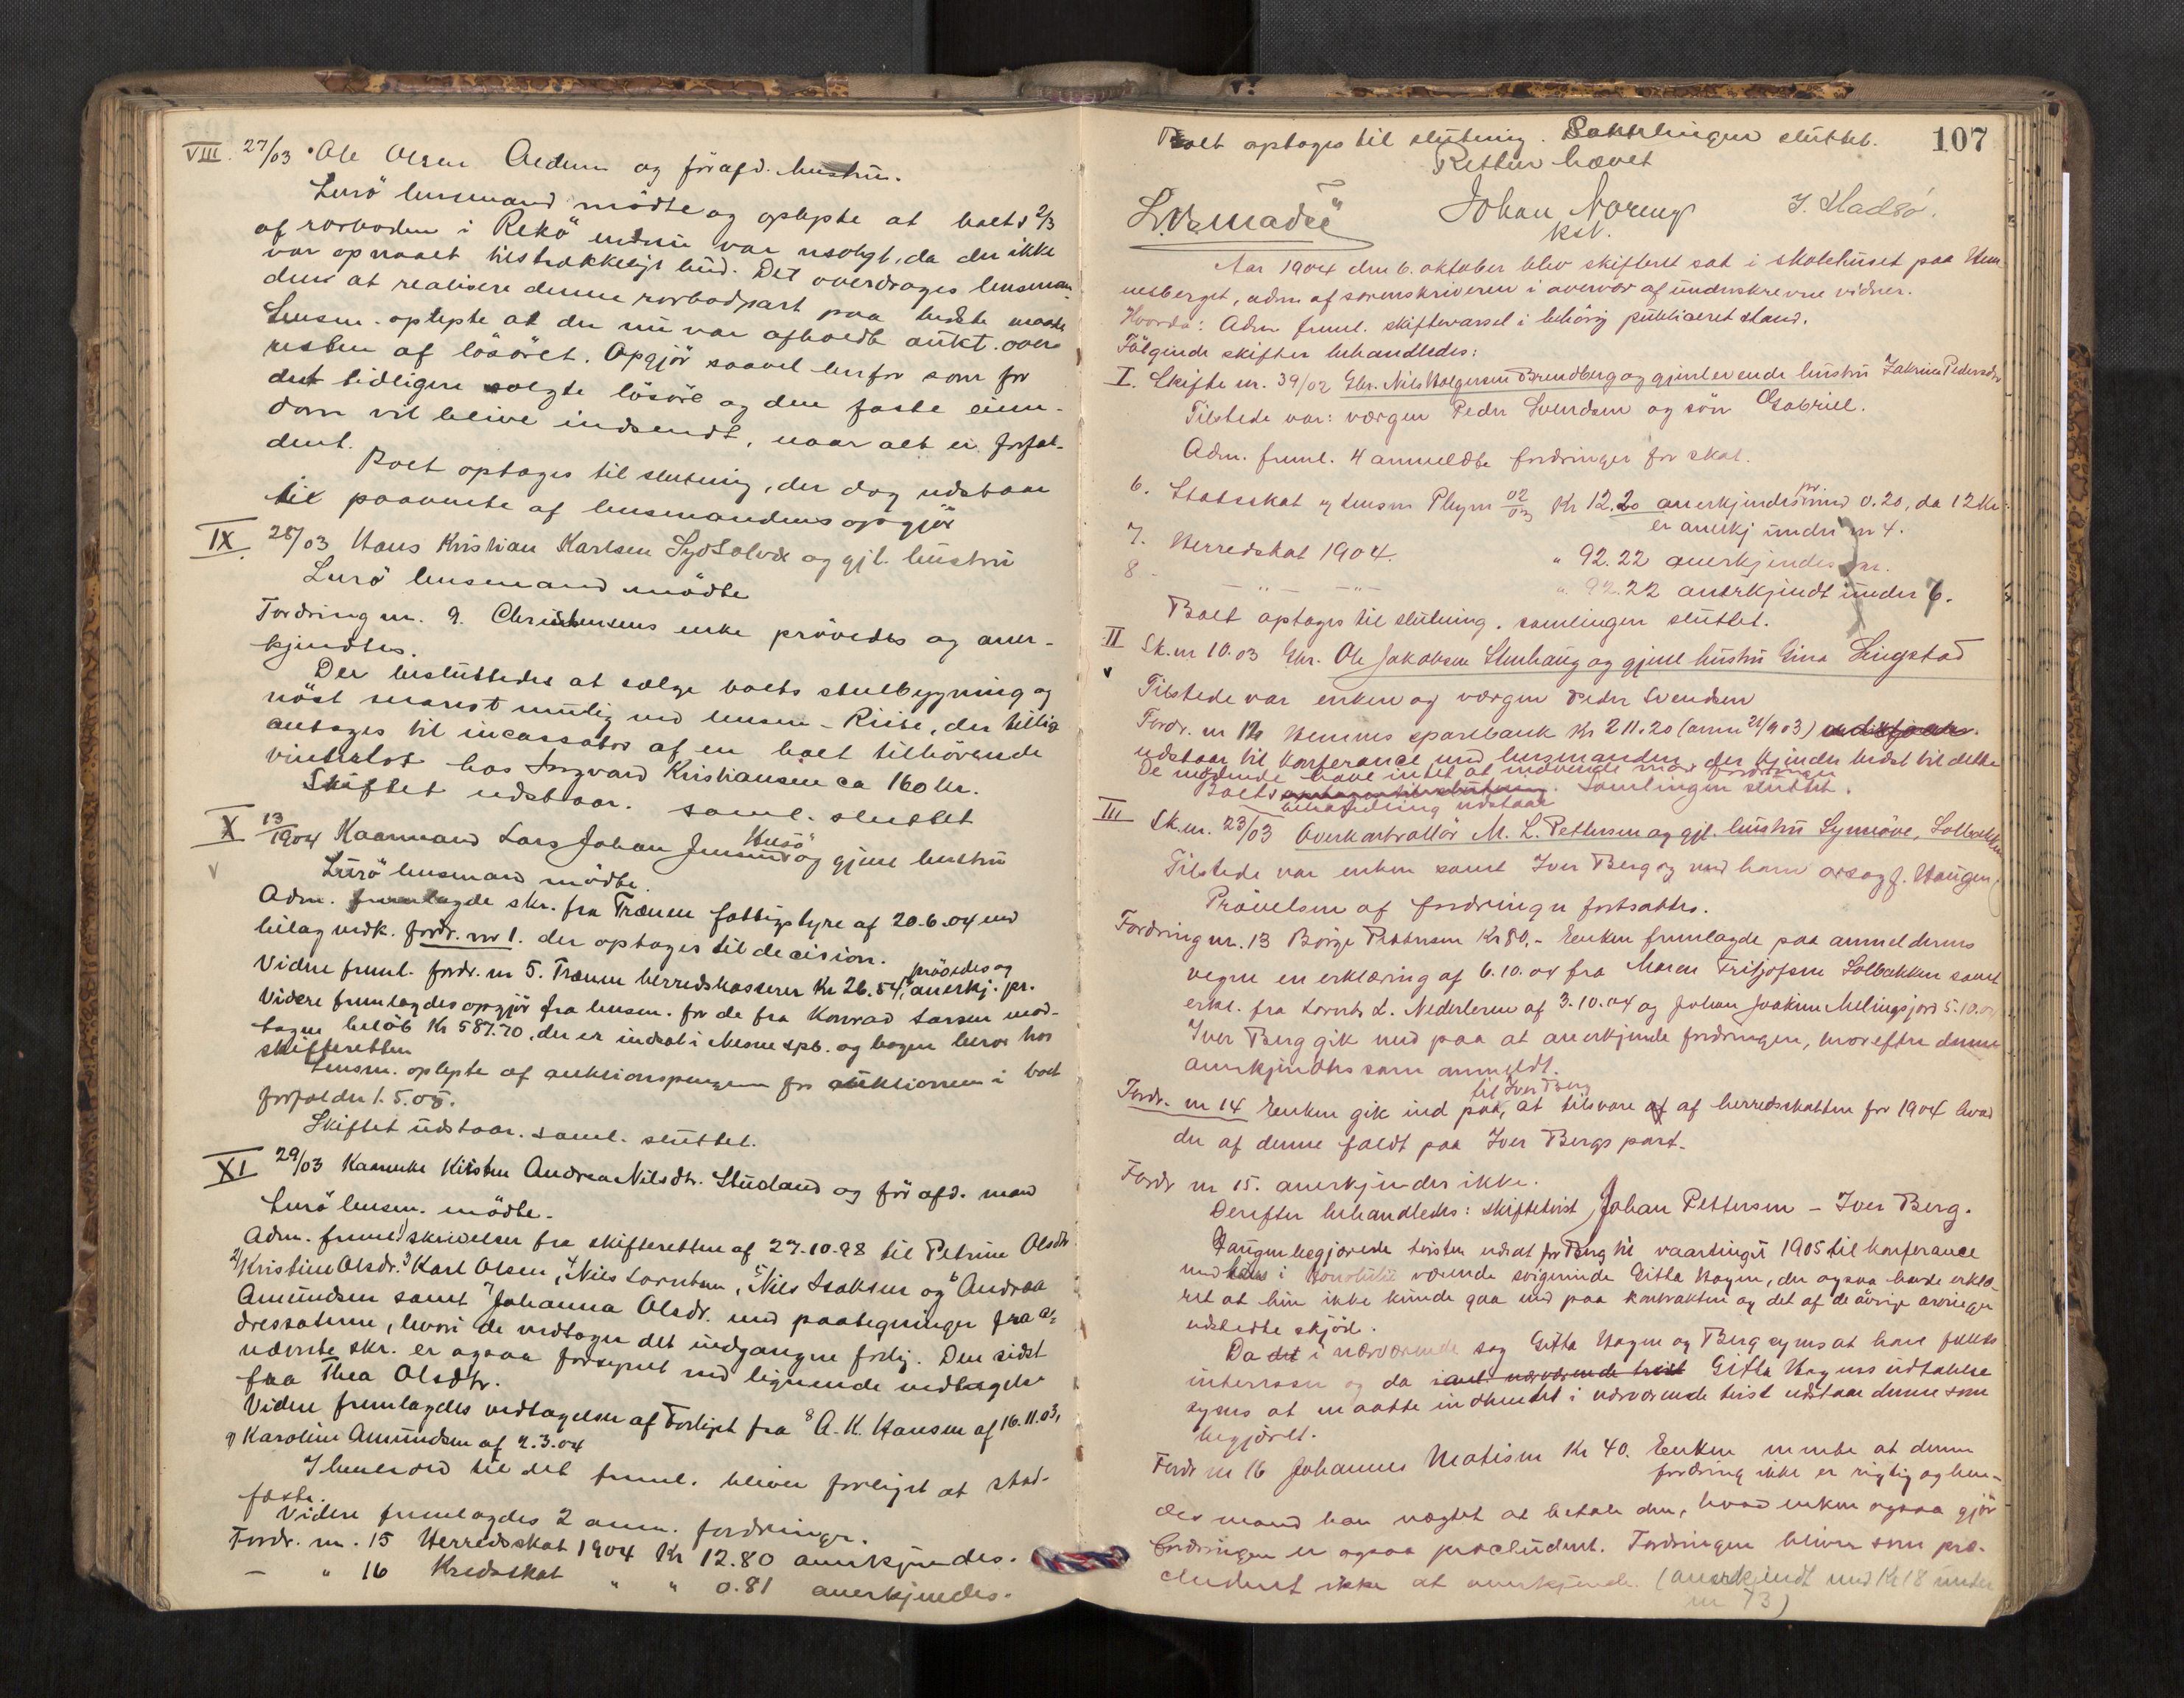 VIII. 27/03 Ole Olsen Aldern og förafd. hustru.
Lurö lensmand mödte og oplyste at boets 2/3
af rorboden i Rekö endnu var usolgt, da der ikke
var opnaaet tilstrækkeligt bud. Det overdroges lensman-
den at realisere denne rorbodpart paa bedste maade
Lensm. oplyste at der nu var afholdt aukt. over
resten af lösöret. Opgjör saavel herfor som for
det tidligere solgte lösöre og den faste eien-
dom vil blive indsendt, naar alt er forfal-
dent.
Boet optages til slutning, der dog udstaar
til paavente af lensmandens opgjör
IX. 28/03 Hans Kristian Karlsen Sydsolvær og gjl. hustru
Lurö lensmand mödte
Fordring nr. 9. Christensens enke prövedes og aner-
kjendtes.
Der besluttedes at sælge boets stuebygning og
nöst snarest mulig ved lensm. Riise, der tillige
antages til incassator af en boet tilhörende
vinterlot hos Ingvard Kristiansen ca 160 kr.
Skiftet udstaar. saml. sluttet
X 13/1904 Kaarmand Lars Johan Jensen Husö og gjenl hustru
Lurö lensmand mödte.
Adm. fremlagde skr. fra Trænen fattigstyre af 20.6.04 med
bilag vedk. fordr. nr 1. der optages til decision.
Videre freml. fordr. nr 5. Trænen herredskasserer Kr 26.54, prövedes og anerkj. pr.
Videre fremlagdes opgjör fra lensm. for de fra Konrad Larsen mod-
tagne belöb Kr 587.70, der er indsat i Nesne spb. og bogen beror hos
skifteretten
Lensm. oplyste at auktionspengene for auktionen i boet
forfalder 1.5.05.
Skiftet udstaar. saml. sluttet.
XI 29/03 Kaarenke Kirsten Andrea Nilsdtr. Stuvland og för afd. mand
Lurö lensm. mödte.
Adm. freml. 1) skrivelser fra skifteretten af 27.10.98 til Petrine Olsdtr
2) Kristine Olsdr. 3 Karl Olsen, 4 Nils Lorntsen, 5 Nils Isaksen og 6 Andrea
Amundsen samt 7 Johanna Olsdr. med paategninger fra a-
dressaterne, hvori de vedtager det indgangne forlig. Den sidst
nævnte skr. er ogsaa forsynet med lignende vedtagelse
fra Thea Olsdtr.
Videre fremlagdes vedtagelser af Forliget fra 8 A. K. Hansen af 16.11.03,
9) Karoline Amundsen af 2.3.04
I henhold til det freml. bliver forliget at stad-
fæste.
Videre fremlagdes 2 anm. fordringer.
Fordr. nr. 15 Herredsskat 1904 Kr 12.80 anerkjendes.
— " 16 Kredsskat " " 0.81 anerkjendes.
107
Boet optages til slutning. Samlingen sluttet.
Retten hævet
Johan Noreng
kst.
J. Madsö.
Aar 1904 den 6. oktober blev skifteret sat i skolehuset paa Hem-
nesberget, adm. af sorenskriveren i overvær af underskrevne vidner.
Hvorda: Adm freml. skiftevarsel i behörig publiceret stand.
Fölgende skifter behandledes:
I. Skifte nr. 39/02 Gbr. Nils Holgersen Brendberg og gjenlevende hustru Jakrine Pedersdtr
Tilstede var: værgen Peder Svendsen og sön Gabriel.
Adm. freml. 4 anmeldte fordringer for skat.
6. Statsskat v/ lensm Pleym 02/03 Kr 12.20 anerkjendes pr. med 0.20, da 12 Kr.
er anerkj under nr 4.
7. Herredskat 1904. " 92.22 anerkjendes pr.
8 — " — — " — " 92.22 anerkjendt under 7.
Boet optages til slutning. samlingen sluttet.
II Sk. nr 10.03 Gbr. Ole Jakobsen Stenhaug og gjenl hustru Gina Lingstad
Tilstede var enken og værgen Peder Svendsen
Fordr. nr 12 Hemnes sparebank Kr 211.20 (anm 21/9 03)
udstaar til konferance med lensmanden, der kjender bedst til dette
De mödende have intet at indvende mod fordringen
Boets optages til slutning. Samlingen sluttet.
behandling udstaar
III Sk. nr. 23/03 Overkontrollör M. L. Pettersen og gjl. hustru Synnöve, Solbakken
Tilstede var enken samt Iver Berg og med ham orsagf. Haugen.
Prövelsen af fordringer fortsattes.
Fordring nr. 13 Börge Pettersen Kr 80.- Enken fremlagde paa anmelderens
vegne en erklæring af 6.10.04 fra Maren Fritjofsen Solbakken samt
erkl. fra Lornts L. Nederleren af 3.10.04 og Johan Joakim Melingsjord 5.10.04
Iver Berg gik med paa at anerkjende fordringen, hvorefter denne
anerkjendtes som anmeldt.
Fordr. nr 14 Enken gik ind paa, til Iver Berg at tilsvare af af herredsskatten for 1904 hvad
der af denne faldt paa Iver Bergs part.
Fordr nr 15. anerkjendes ikke.
Derefter behandledes: skiftetvist Johan Pettersen – Iver Berg.
Haugen begjærede tvisten udsat for Berg til vaartinget 1905 til konferance
med hans i Honolulu værende svigerinde Gitta Hagen, der ogsaa havde erklæ-
ret at hun ikke kunde gaa ind paa kontrakten og det af de övrige arvinger
udstedte skjöde.
Da det i nærværende sag Gitta Hagen og Berg synes at have fælles
interesser og da i anl. nærværende tvist Gitta Hagens udtalelse
synes at maatte indhentet i nærværende tvist udstaar denne som
begjæret.
Fordr nr 16 Johannes Matisen Kr 40. Enken mente at denne
fordring ikke er rigtig og hen-
des mand har nægtet at betale den, hvad enken ogsaa gjör
Fordringen er ogsaa præcluderet. Fordringen bliver som præ-
cluderet ikke at anerkjende. (anerkjendt med Kr 18 under
nr 73)